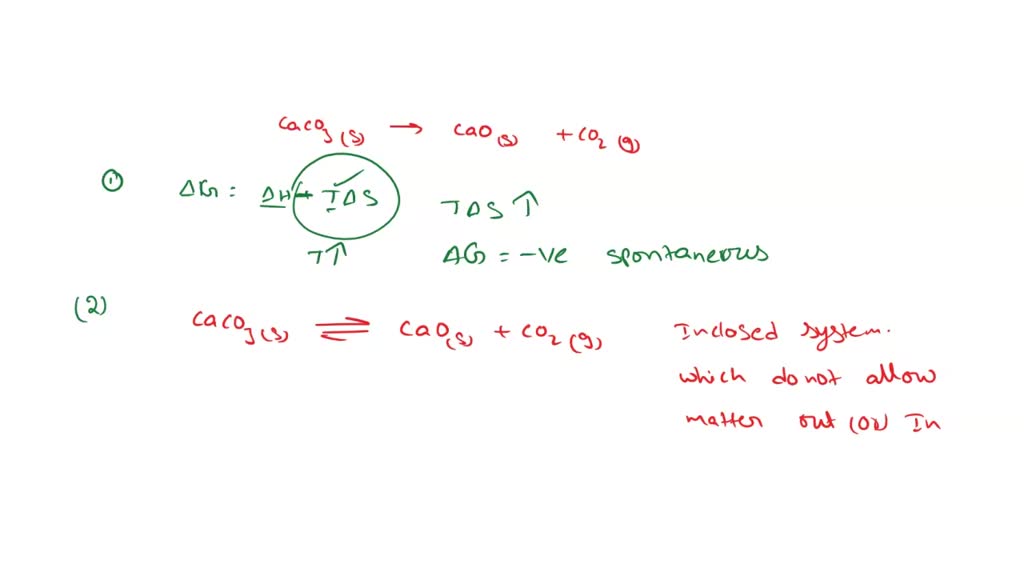 CaCO3(s) → CaO(s) + CO2(g)
① ΔG = ΔH - TΔS TΔS ↑
T↑ ΔG = -ve spontaneous
(2) CaCO3(s) ⇌ CaO(s) + CO2(g) Inclosed system.
which do not allow
matter out (or) In